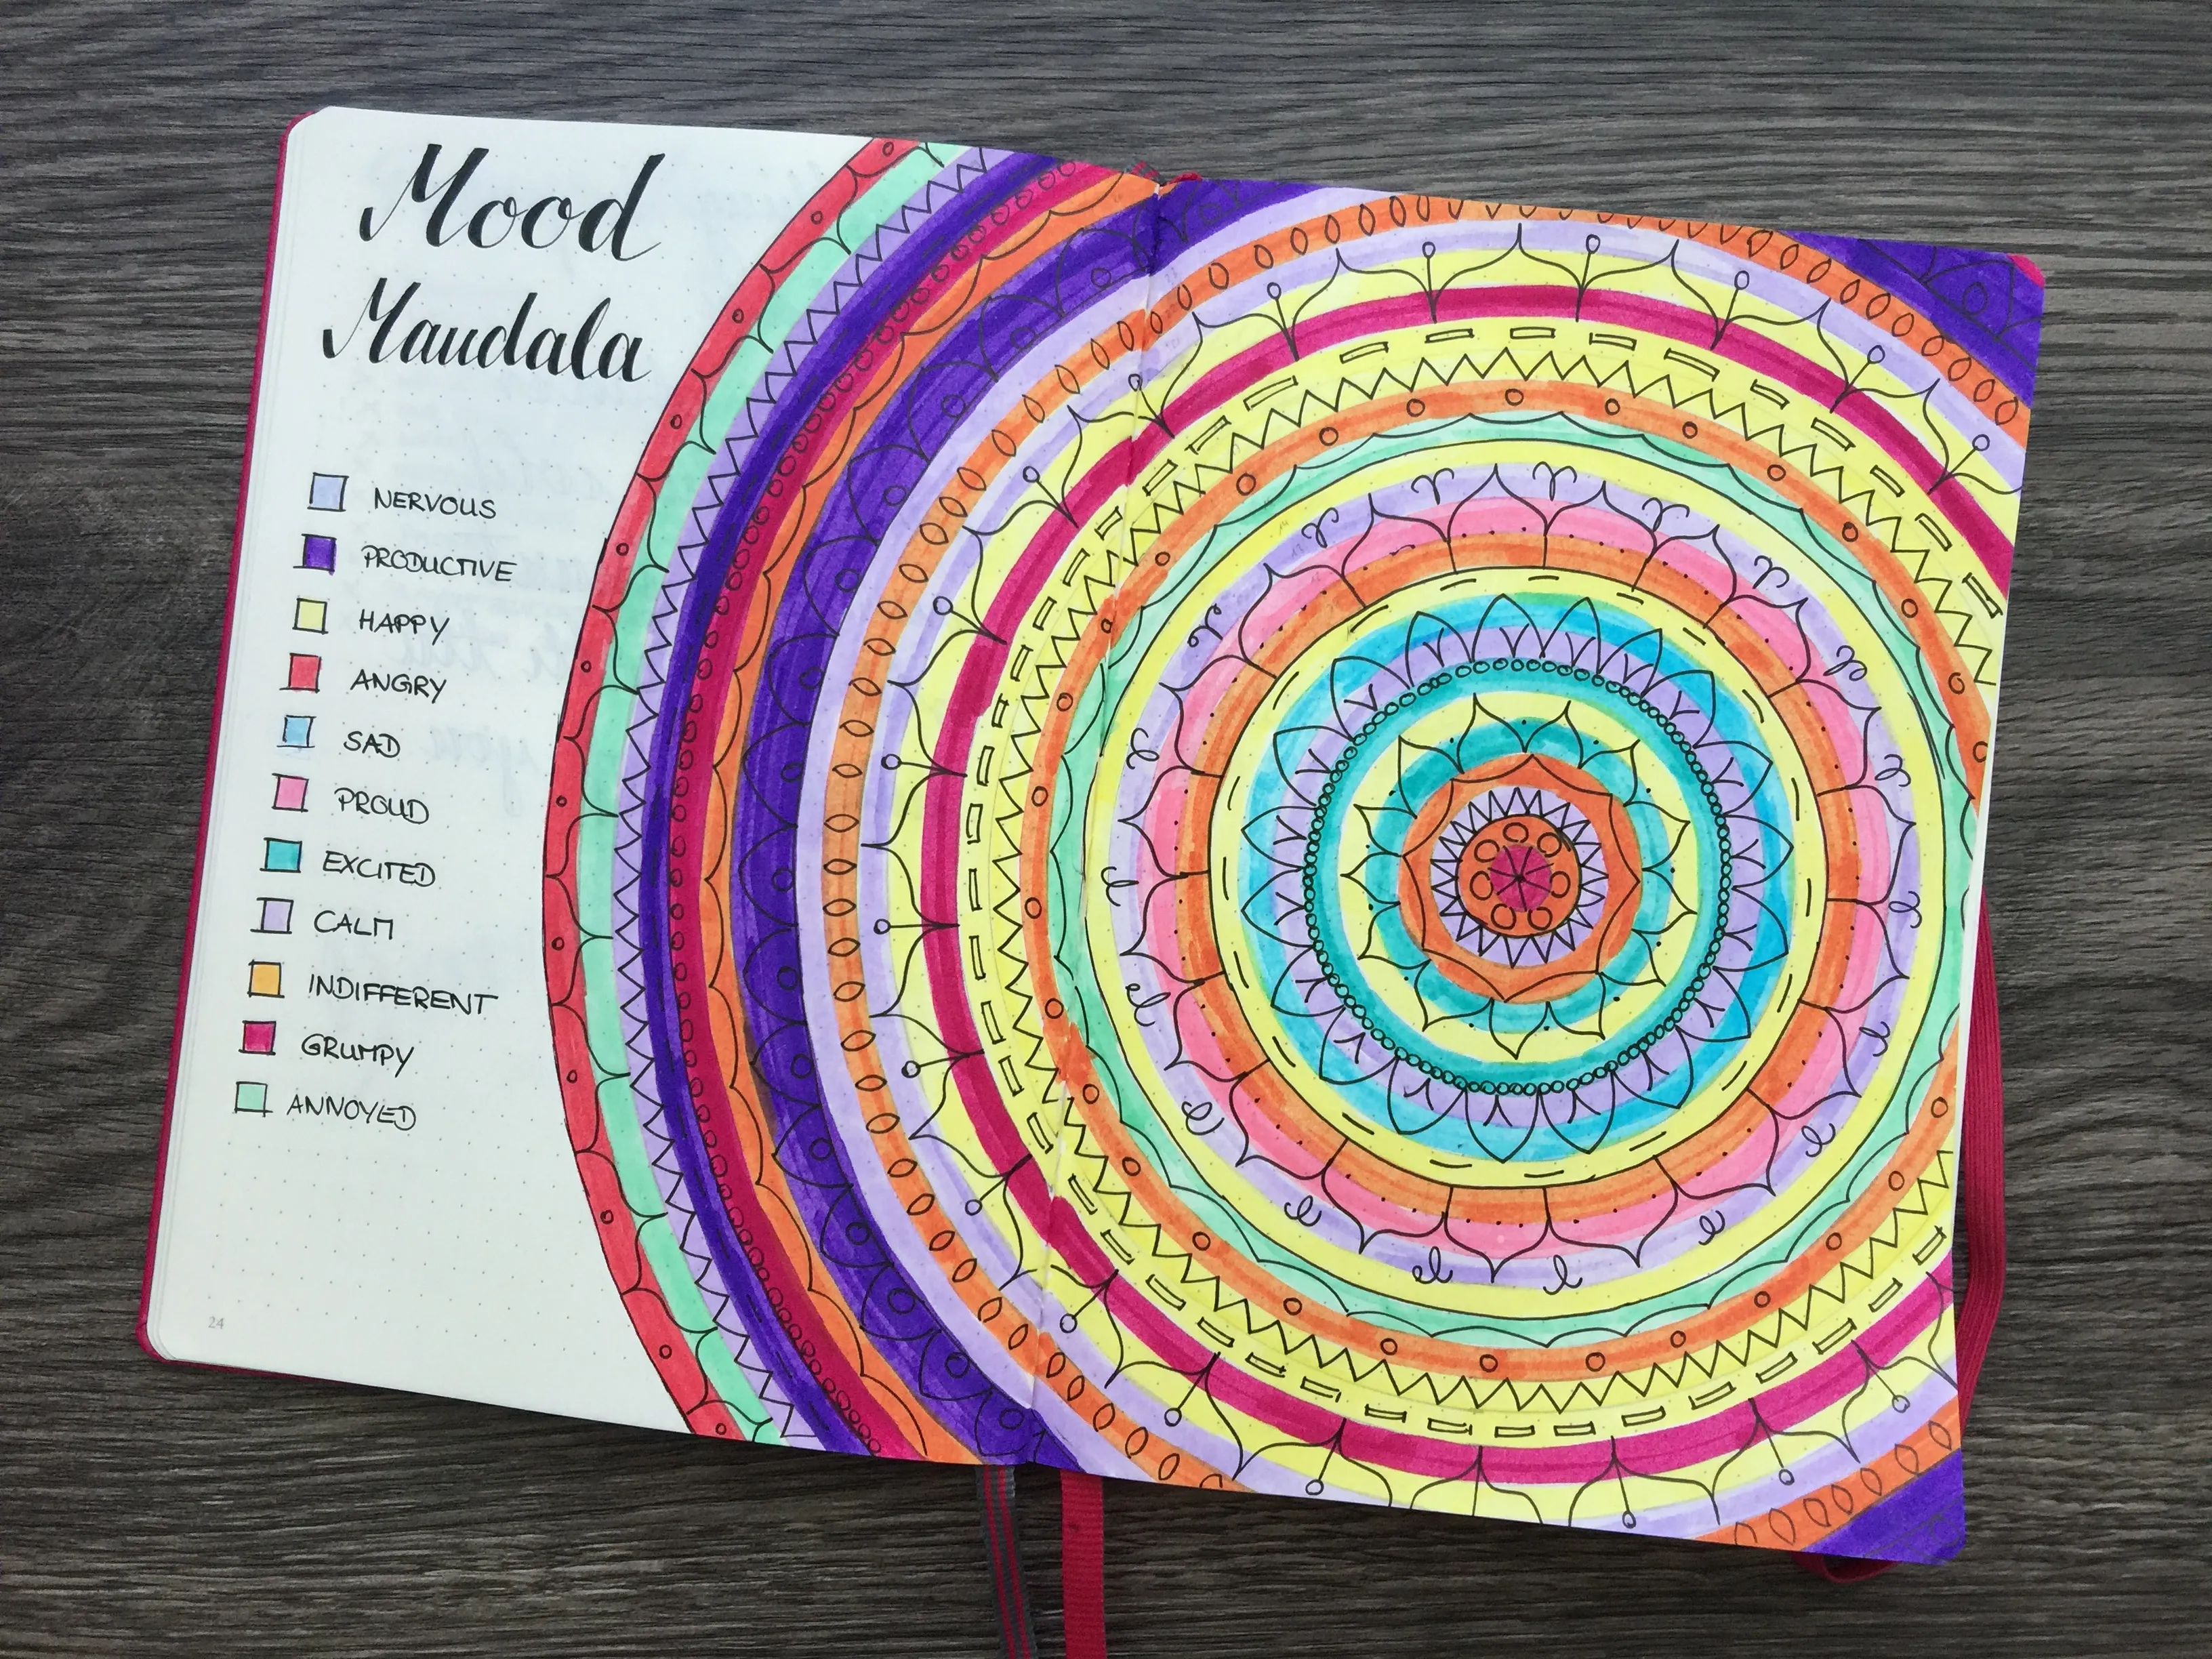 Mood
Mandala
NERVOUS
PRODUCTIVE
HAPPY
ANGRY
SAD
PROUD
EXCITED
CALM
INDIFFERENT
GRUMPY
ANNOYED
24